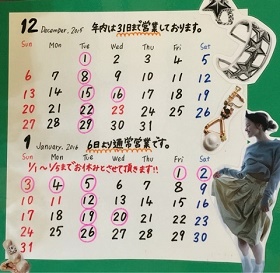 12 December, 2015 年内は31日まで営業しております。
Sun Mon Tue Wed Thu Fri Sat
1 2 3 4 5
6 7 8 9 10 11 12
13 14 15 16 17 18 19
20 21 22 23 24 25 26
27 28 29 30 31
1 January, 2016 6日より通常営業です。
1/1〜1/5までお休みとさせて頂きます!!
Sun Mon Tue Wed Thu Fri Sat
1 2
3 4 5 6 7 8 9
10 11 12 13 14 15 16
17 18 19 20 21 22 23
24 25 26 27 28 29 30
31